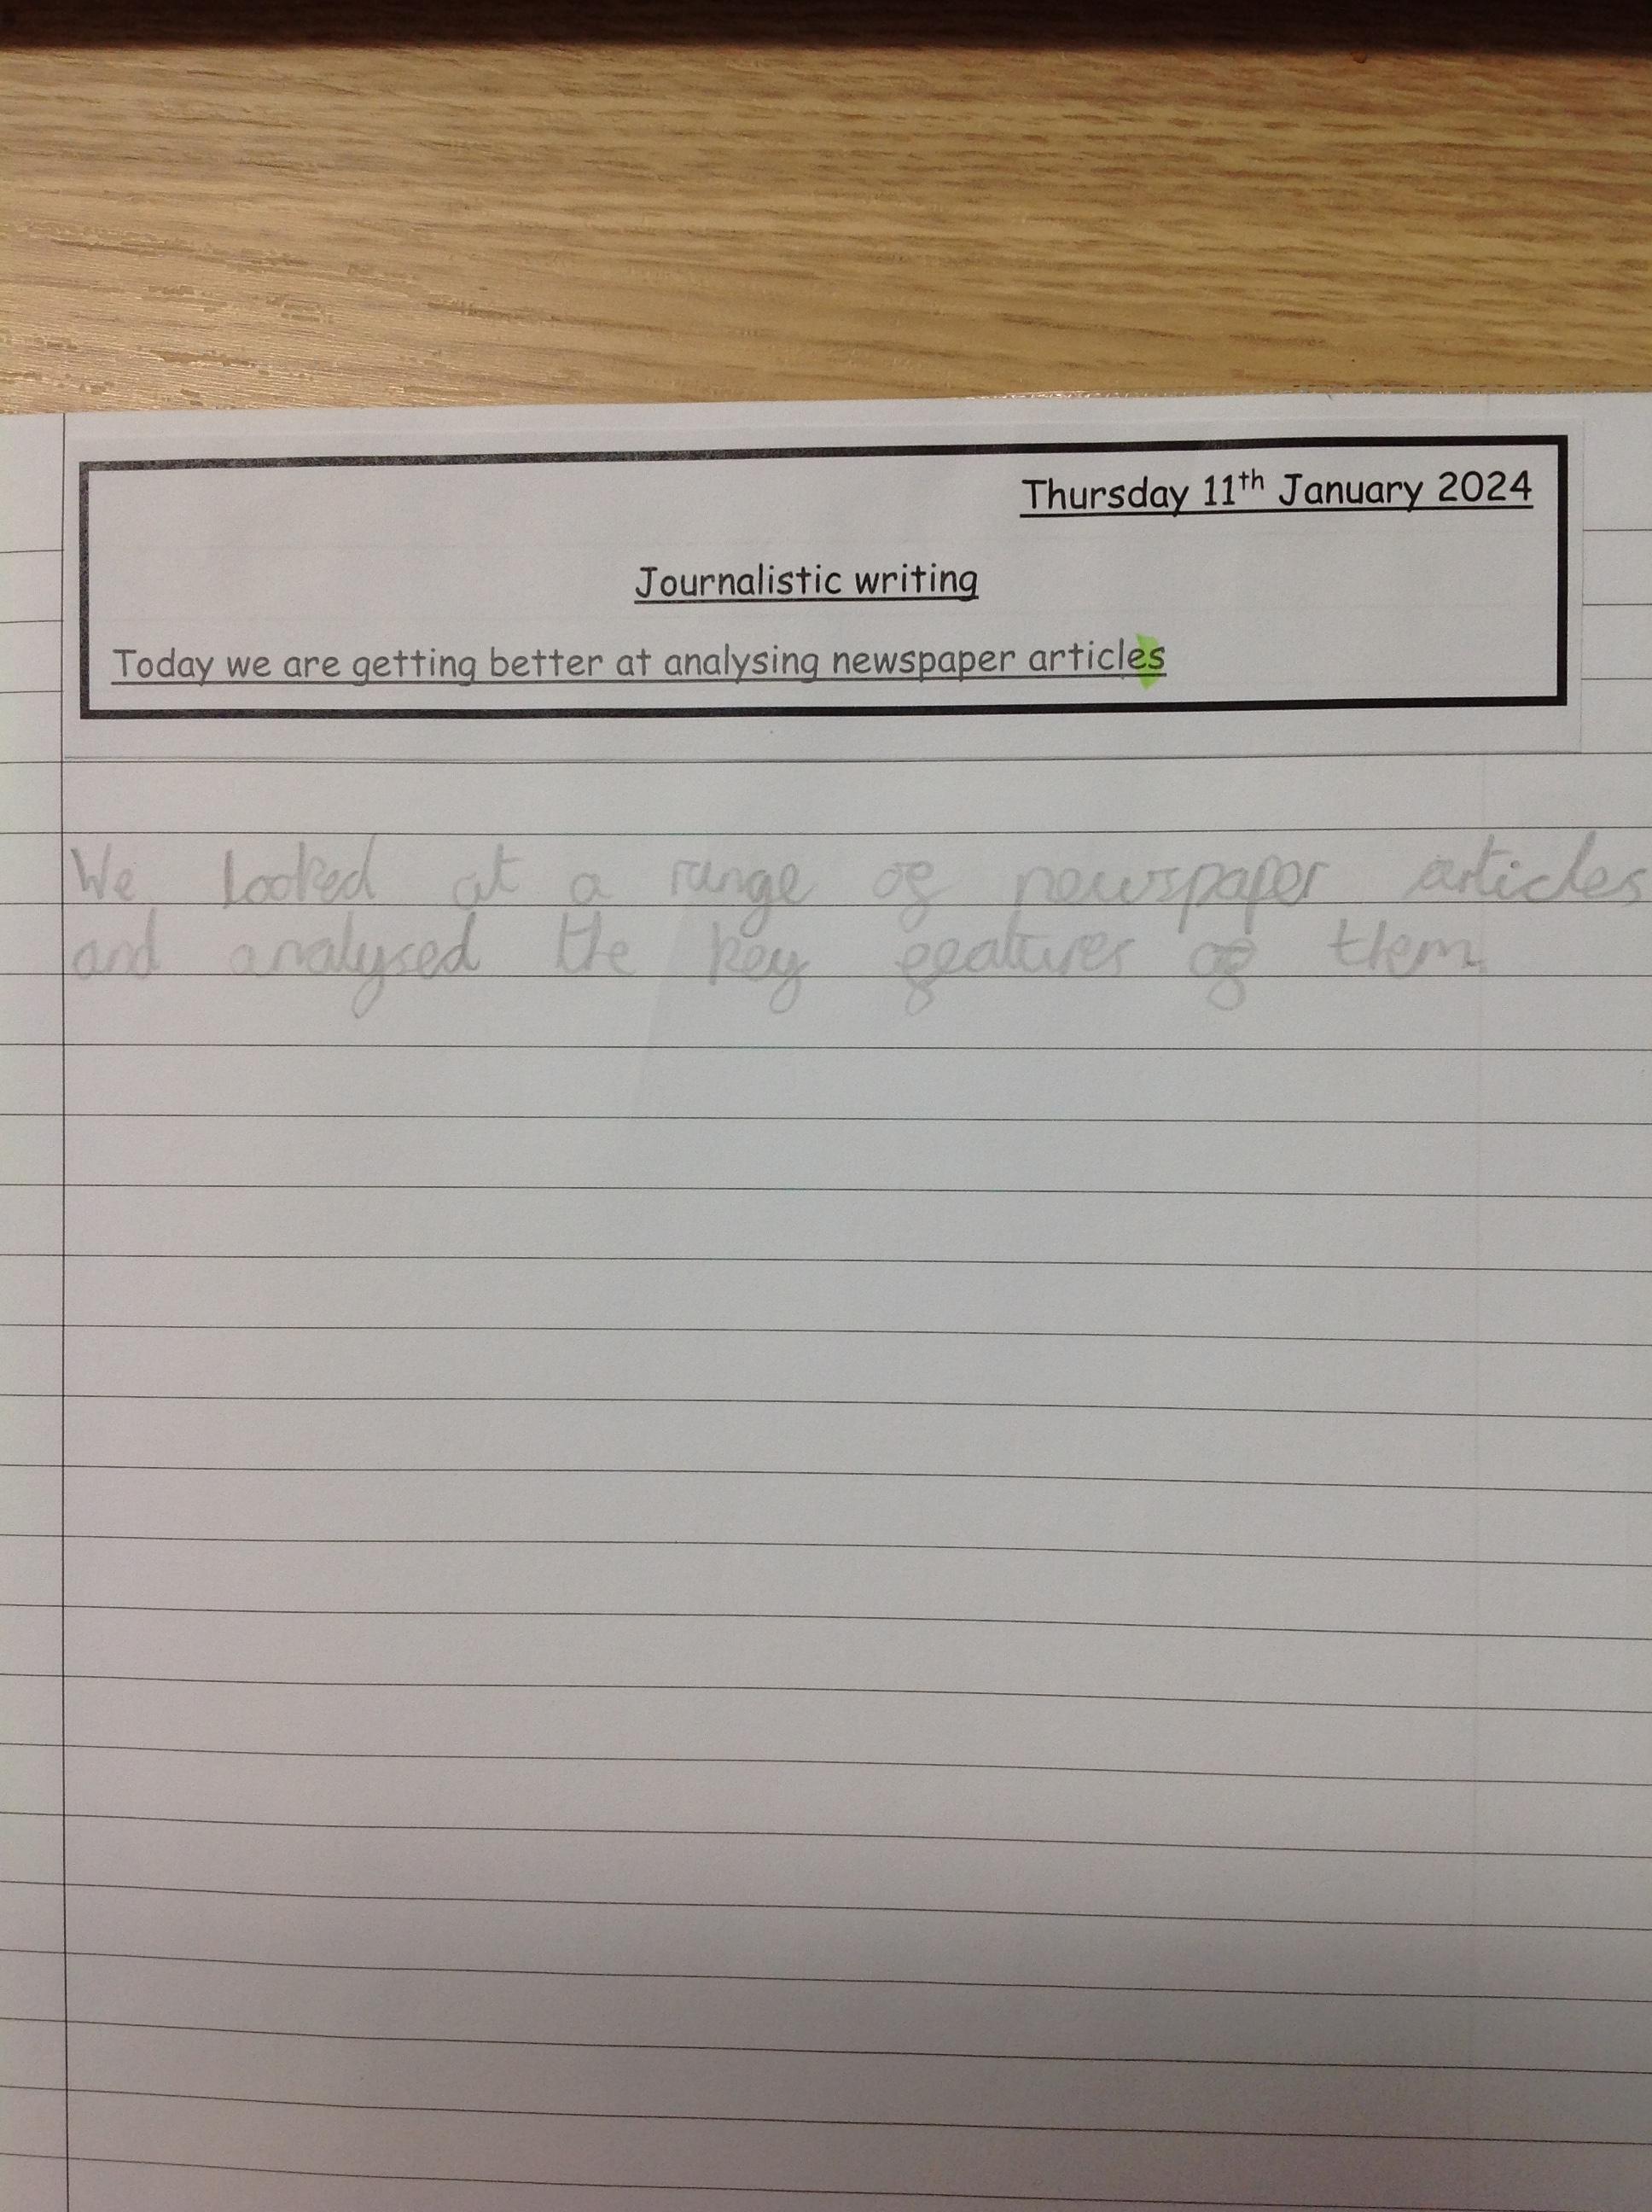 Thursday 11th January 2024
Journalistic writing
Today we are getting better at analysing newspaper articles
We looked at a range of newspaper articles
and analysed the key features of them.